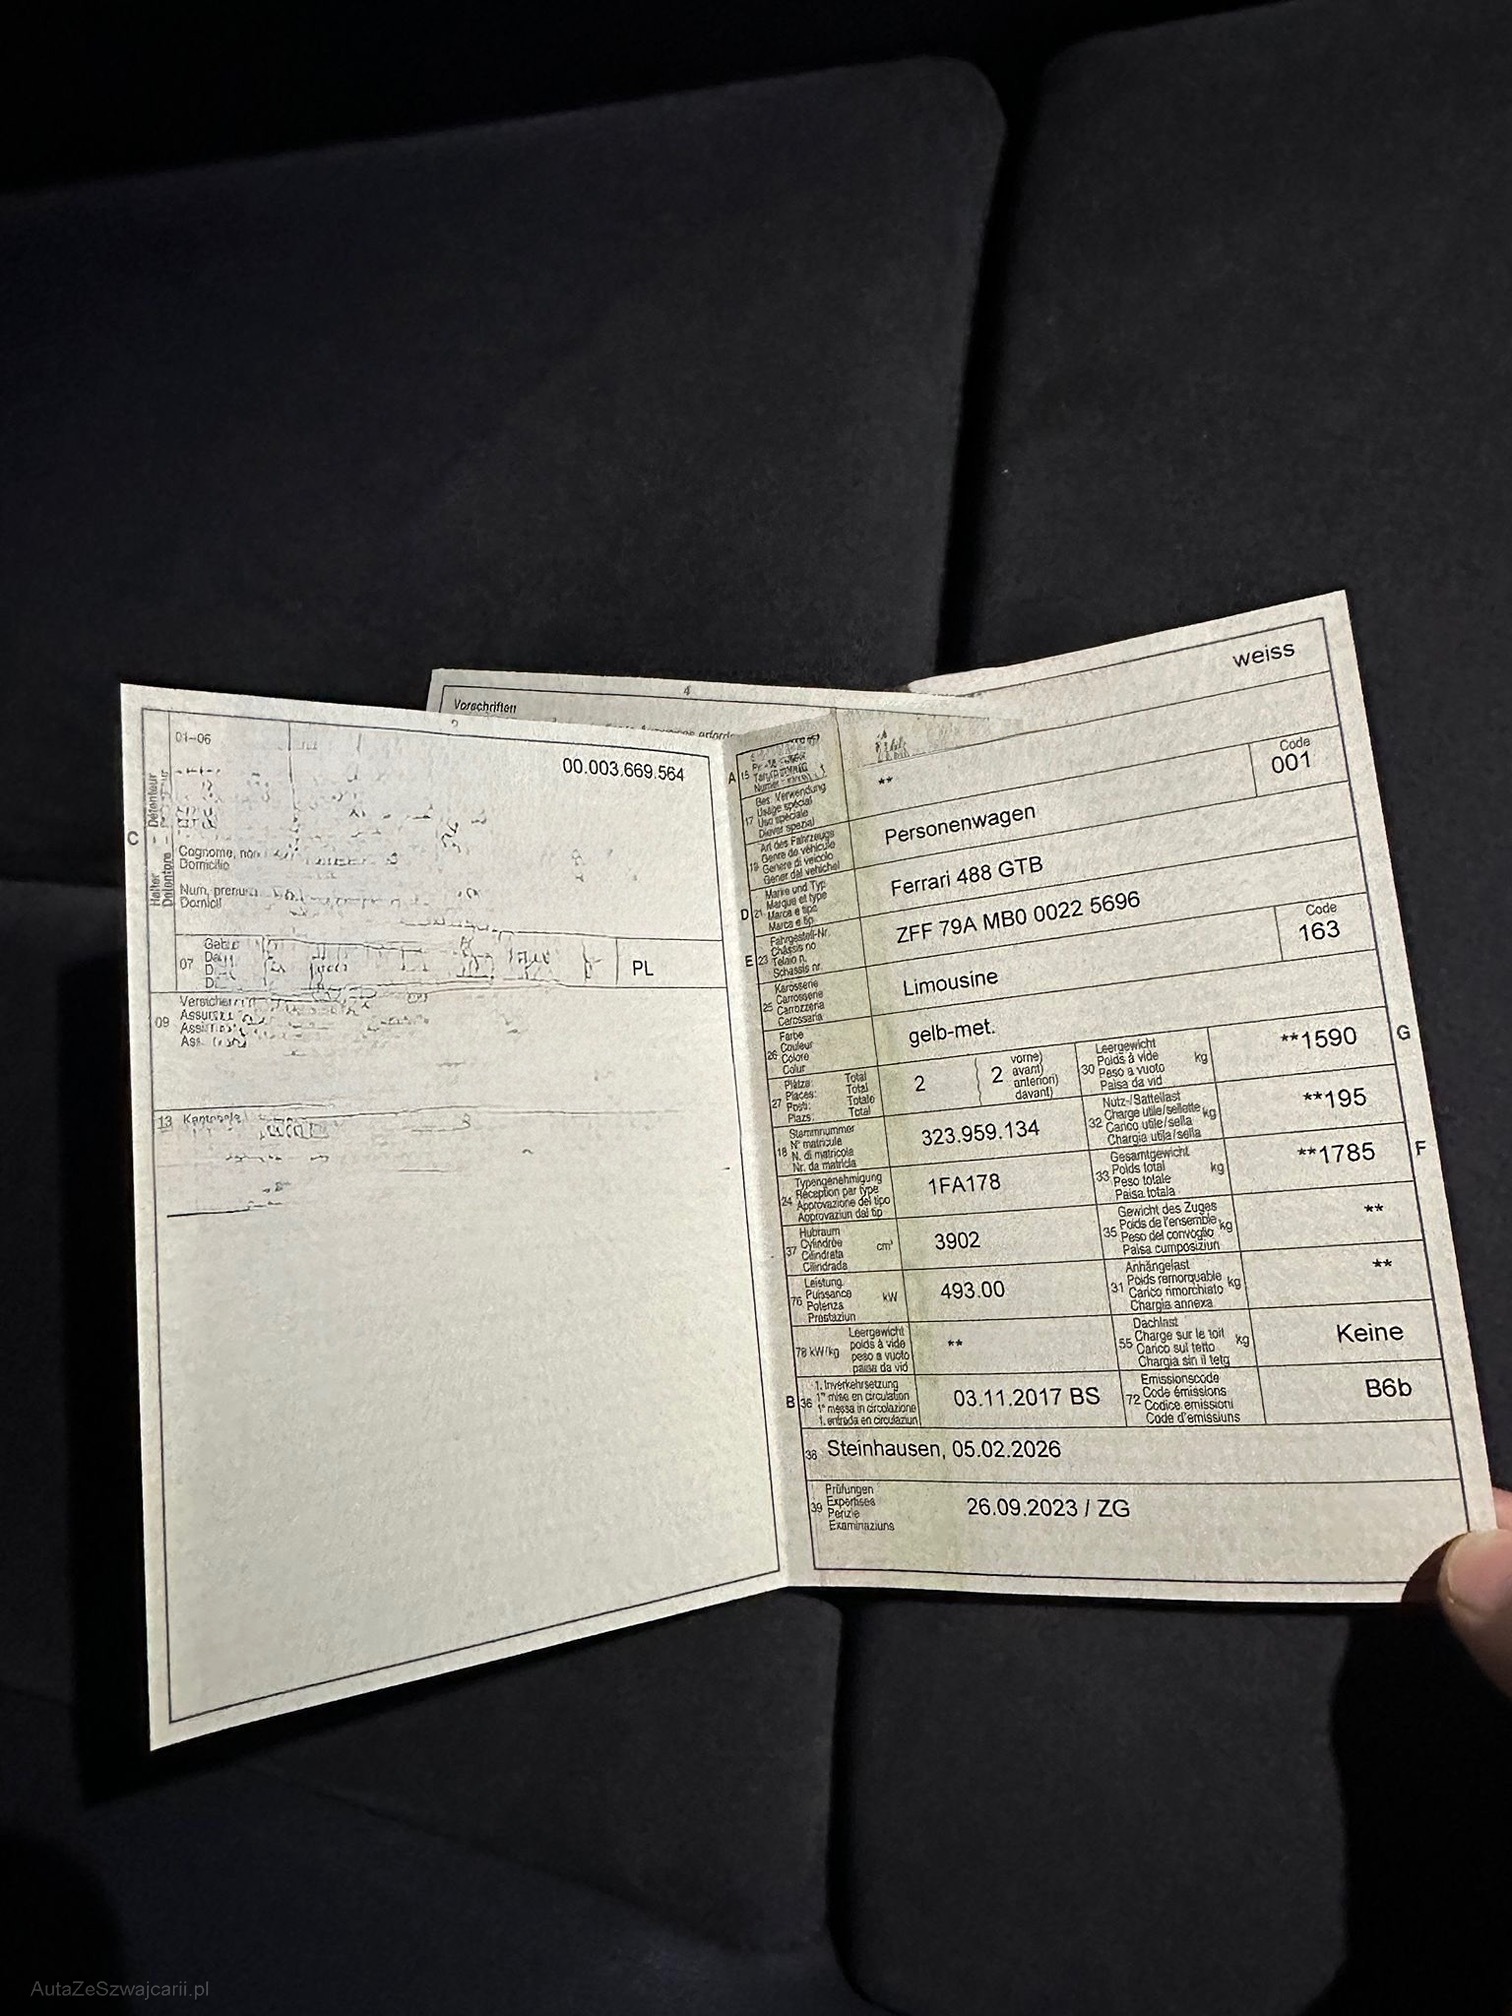 4
Vorschriften
2
01-06
00.003.669.564
C
Halter - Détenteur
Detentore -
Cognome, nom
Domicilio
Num, prenum
Domicil
07
PL
09
Assi
13
weiss
A
15
Numer
**
Code
001
17
Bes. Verwendung
Usage spécial
Uso speciale
Diever spezial
19
Art des Fahrzeugs
Genre de véhicule
Genere di veicolo
Gener dal vehichel
Personenwagen
D
21
Marke und Typ
Marque et type
Marca e tipo
Marca e tip
Ferrari 488 GTB
E
23
Fahrgestell-Nr.
Châssis no
Telaio n.
Schassis nr.
ZFF 79A MB0 0022 5696
25
Karosserie
Carrosserie
Carrozzeria
Carossaria
Limousine
Code
163
26
Farbe
Couleur
Colore
Colur
gelb-met.
27
Plätze: Total
Places: Total
Posti: Totale
Plazs: Total
2
2
vorne)
avant)
anteriori)
davant)
30
Leergewicht
Poids à vide
Peso a vuoto
Paisa da vid
kg
**1590
G
18
Stammnummer
N° matricule
N. di matricola
Nr. da matricla
323.959.134
32
Nutz-/Sattellast
Charge utile/sellette
Carico utile/sella
Chargia utila/sella
kg
**195
24
Typengenehmigung
Réception par type
Approvazione del tipo
Approvaziun dal tip
1FA178
33
Gesamtgewicht
Poids total
Peso totale
Paisa totala
kg
**1785
F
37
Hubraum
Cylindrée
Cilindrata
Cilindrada
cm³
3902
35
Gewicht des Zuges
Poids de l'ensemble
Peso del convoglio
Paisa cumposiziun
kg
**
76
Leistung
Puissance
Potenza
Prestaziun
kW
493.00
31
Anhängelast
Poids remorquable
Carico rimorchiato
Chargia annexa
kg
**
78 kW/kg
Leergewicht
poids à vide
peso a vuoto
paisa da vid
**
55
Dachlast
Charge sur le toit
Carico sul tetto
Chargia sin il tetg
kg
Keine
B
36
1. Inverkehrsetzung
1re mise en circulation
1a messa in circolazione
1. entrada en circulaziun
03.11.2017 BS
72
Emissionscode
Code émissions
Codice emissioni
Code d'emissiuns
B6b
38
Steinhausen, 05.02.2026
39
Prüfungen
Expertises
Perizie
Examinaziuns
26.09.2023 / ZG
AutaZeSzwajcarii.pl